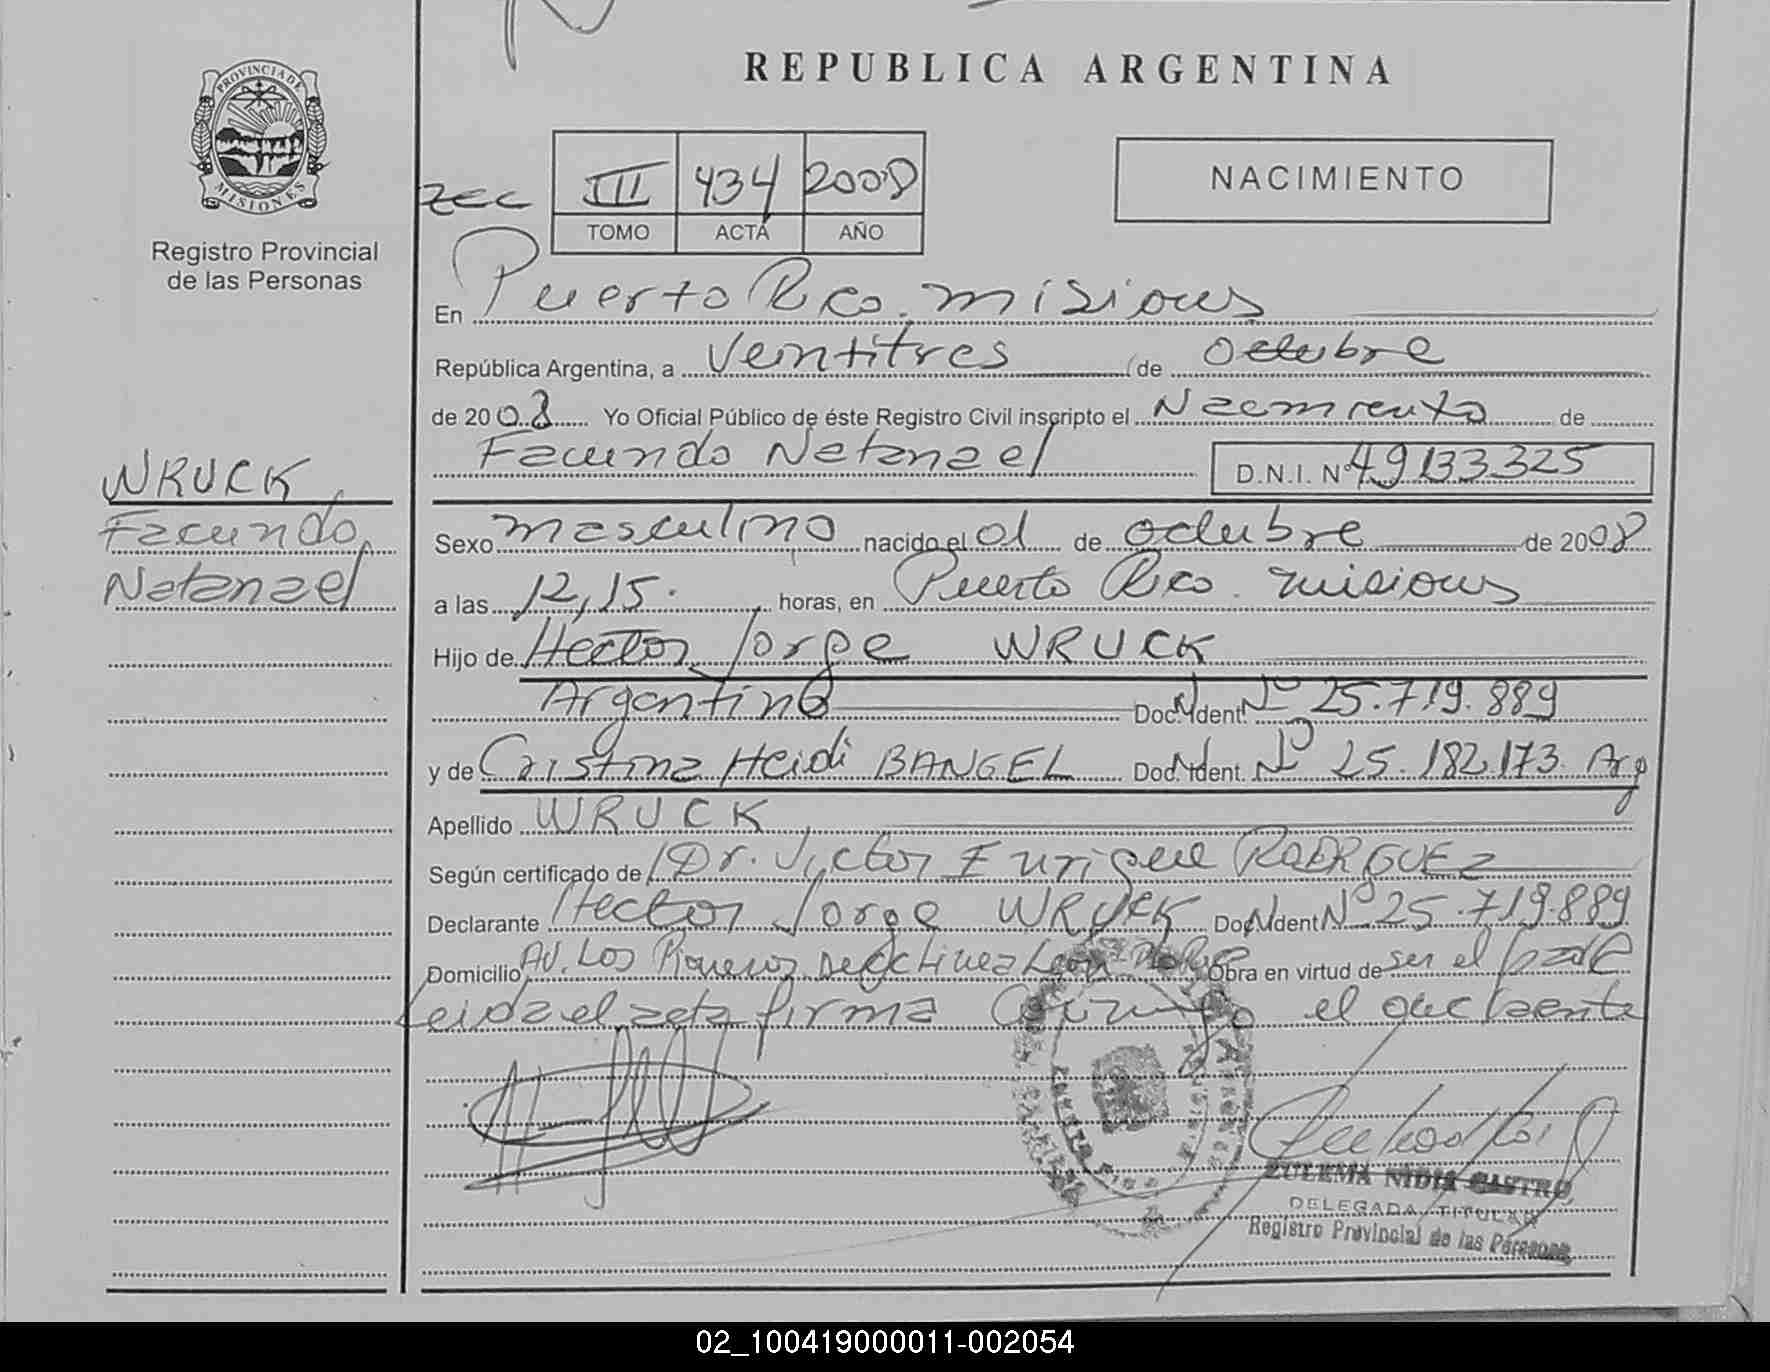 PROVINCIA DE
MISIONES
Registro Provincial
de las Personas
WRUCK
Facundo
Natanael
REPUBLICA ARGENTINA
NACIMIENTO
III 434 2008
TOMO ACTA AÑO
En Puerto Rico. misiones
República Argentina, a Veintitres de Octubre
de 2008 Yo Oficial Público de éste Registro Civil inscripto el Nacimiento de
Facundo Natanael D.N.I. Nº 49133325
Sexo masculino nacido el 01 de octubre de 2008
a las 12,15. horas, en Puerto Rico. misiones
Hijo de Hector Jorge WRUCK
Argentino Doc. Ident. Nº 25.719.889
y de Cristina Heidi BANGEL Doc. Ident. Nº 25.182.173. Arg
Apellido WRUCK
Según certificado de Dr. Victor Enrique RODRGUEZ
Declarante Hector Jorge WRUCK Doc. Ident Nº 25.719.889
Domicilio Av. Los Pioneros Obra en virtud de ser el padre
Leida el acta firma el declarante
ZULEMA NIDIA CASTRO
DELEGADA TITULAR
Registro Provincial de las Personas
02_100419000011-002054